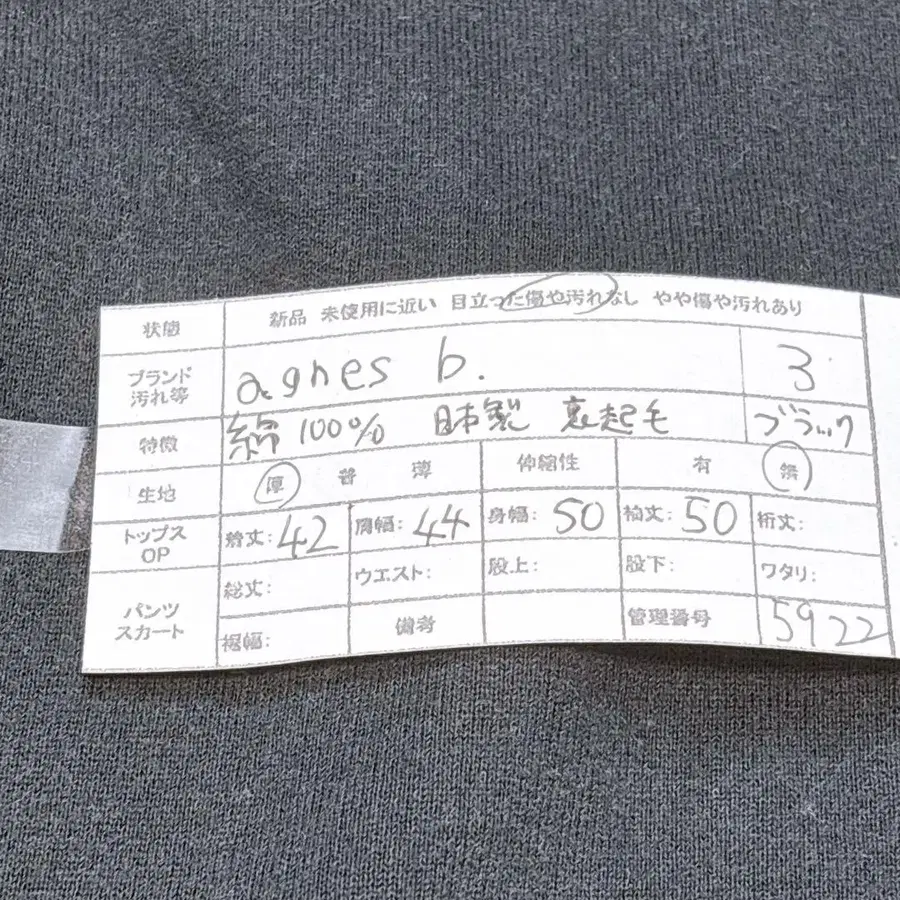 状態 新品 未使用に近い 目立った傷や汚れなし やや傷や汚れあり
ブランド 汚れ等 agnes b. 3
特徴 綿100% 日本製 裏起毛 ブラック
生地 厚 普 薄 伸縮性 有 無
トップス OP 着丈: 42 肩幅: 44 身幅: 50 袖丈: 50 裄丈:
パンツ スカート 総丈: ウエスト: 股上: 股下: ワタリ:
裾幅: 備考 管理番号 5922